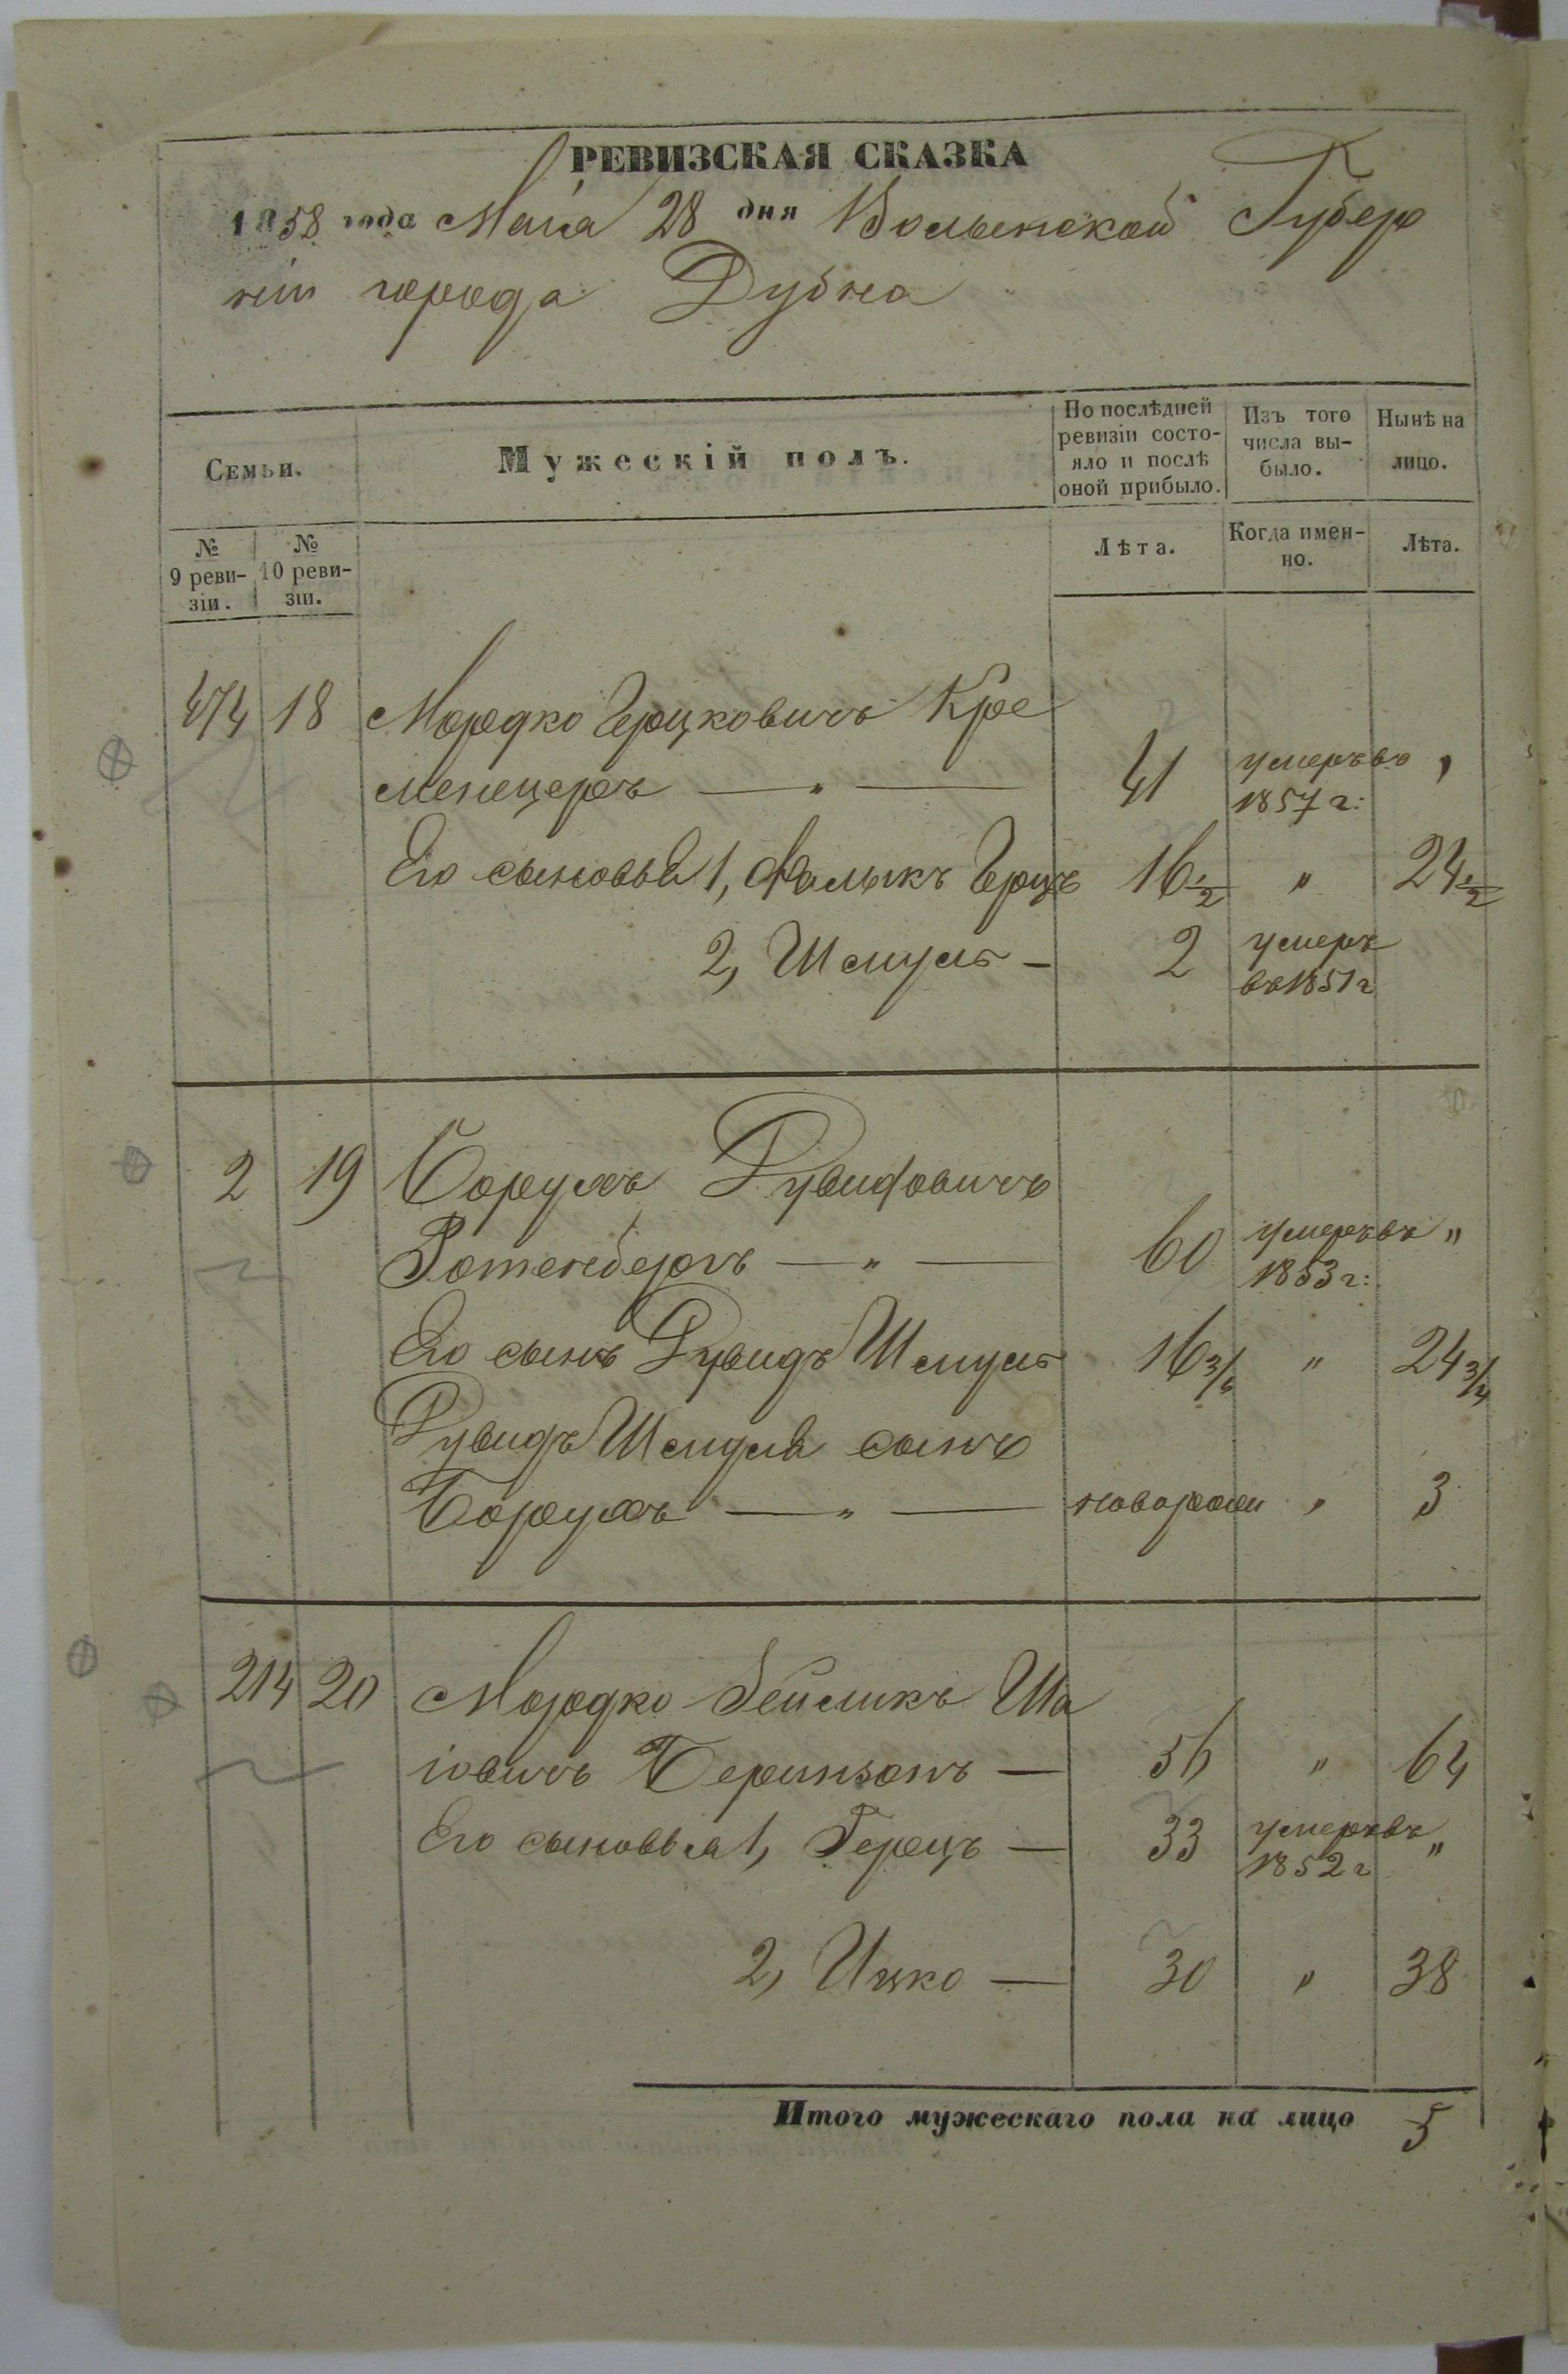 РЕВИЗСКАЯ СКАЗКА
1858 года Маія 28 дня Волынской Губер
ніи города Дубна
Семьи.
Мужескій полъ.
По послѣдней ревизіи состо-
яло и послѣ оной прибыло.
Изъ того числа вы-
было.
Нынѣ на лицо.
№ 9 реви-
зіи.
№ 10 реви-
зіи.
Лѣта.
Когда имен-
но.
Лѣта.
474 18 Мордко Герцковичъ Кре
менецеръ — „ — 41 умеръ въ 1857 г: „
Его сыновья 1, Фалыкъ Герцъ 16 1/2 „ 24 1/2
2, Шмуль — 2 умеръ въ 1851 г
2 19 Борухъ Рувидовичъ
Ротенбергъ — „ — 60 умеръ въ 1853 г: „
Его сынъ Рувидъ Шмуль 16 3/4 „ 24 3/4
Рувидъ Шмуля сынъ
Борухъ — „ — новорожд „ 3
214 20 Мордко Зейликъ Ша
іовичъ Беринзонъ — 56 „ 64
Его сыновья 1, Герецъ — 33 умеръ въ 1852 г „
2, Ицко — 30 „ 38
Итого мужескаго пола на лицо 5